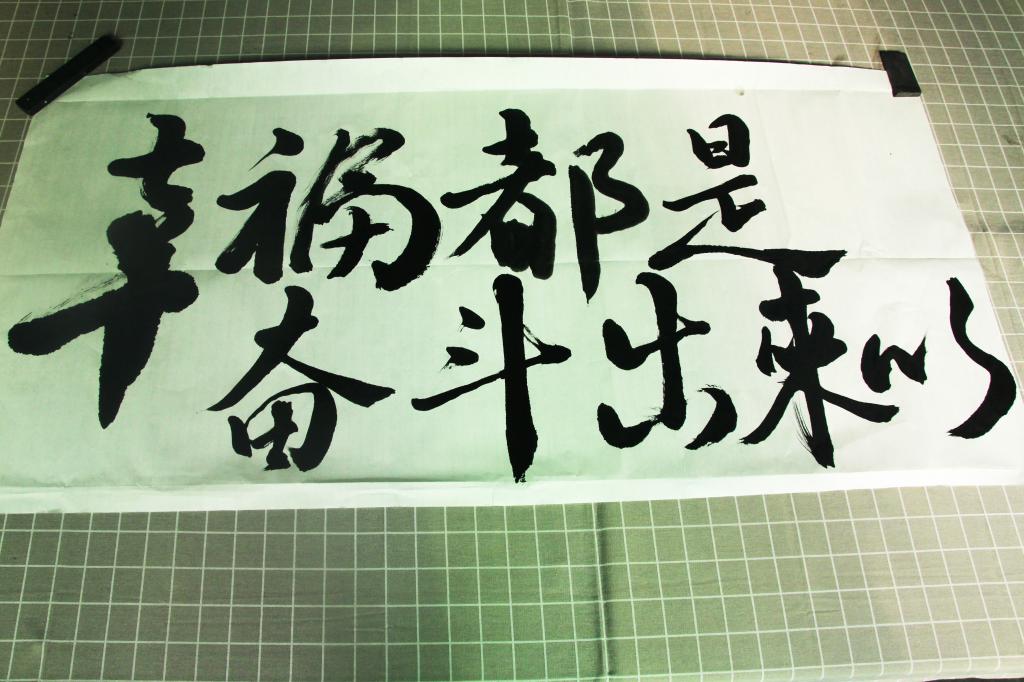 幸福都是
奋斗出来的